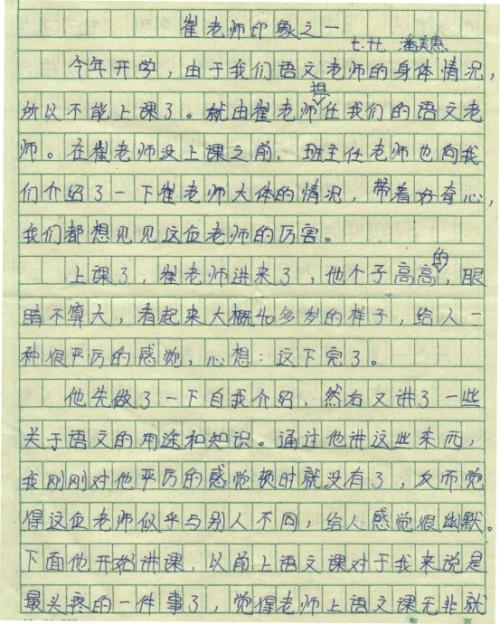 翟老师印象之一
七.廿 潘美惠
今年开学，由于我们语文老师的身体情况，
所以不能上课了。就由翟老师担任我们的语文老
师。在翟老师没上课之前，班主任老师也向我
们介绍了一下翟老师大体的情况，带着好奇心，
我们都想见见这位老师的厉害。
上课了，翟老师进来了，他个子高高的，眼
睛不算大，看起来大概40多岁的样子，给人一
种很严厉的感觉，心想：这下完了。
他先做了一下自我介绍，然后又讲了一些
关于语文的用途和知识。通过他讲这些东西，
我刚刚对他严厉的感觉顿时就没有了，反而觉
得这位老师似乎与别人不同，给人感觉很幽默。
下面他开始讲课，以前上语文课对于我来说是
最头疼的一件事了，觉得老师上语文课无非就